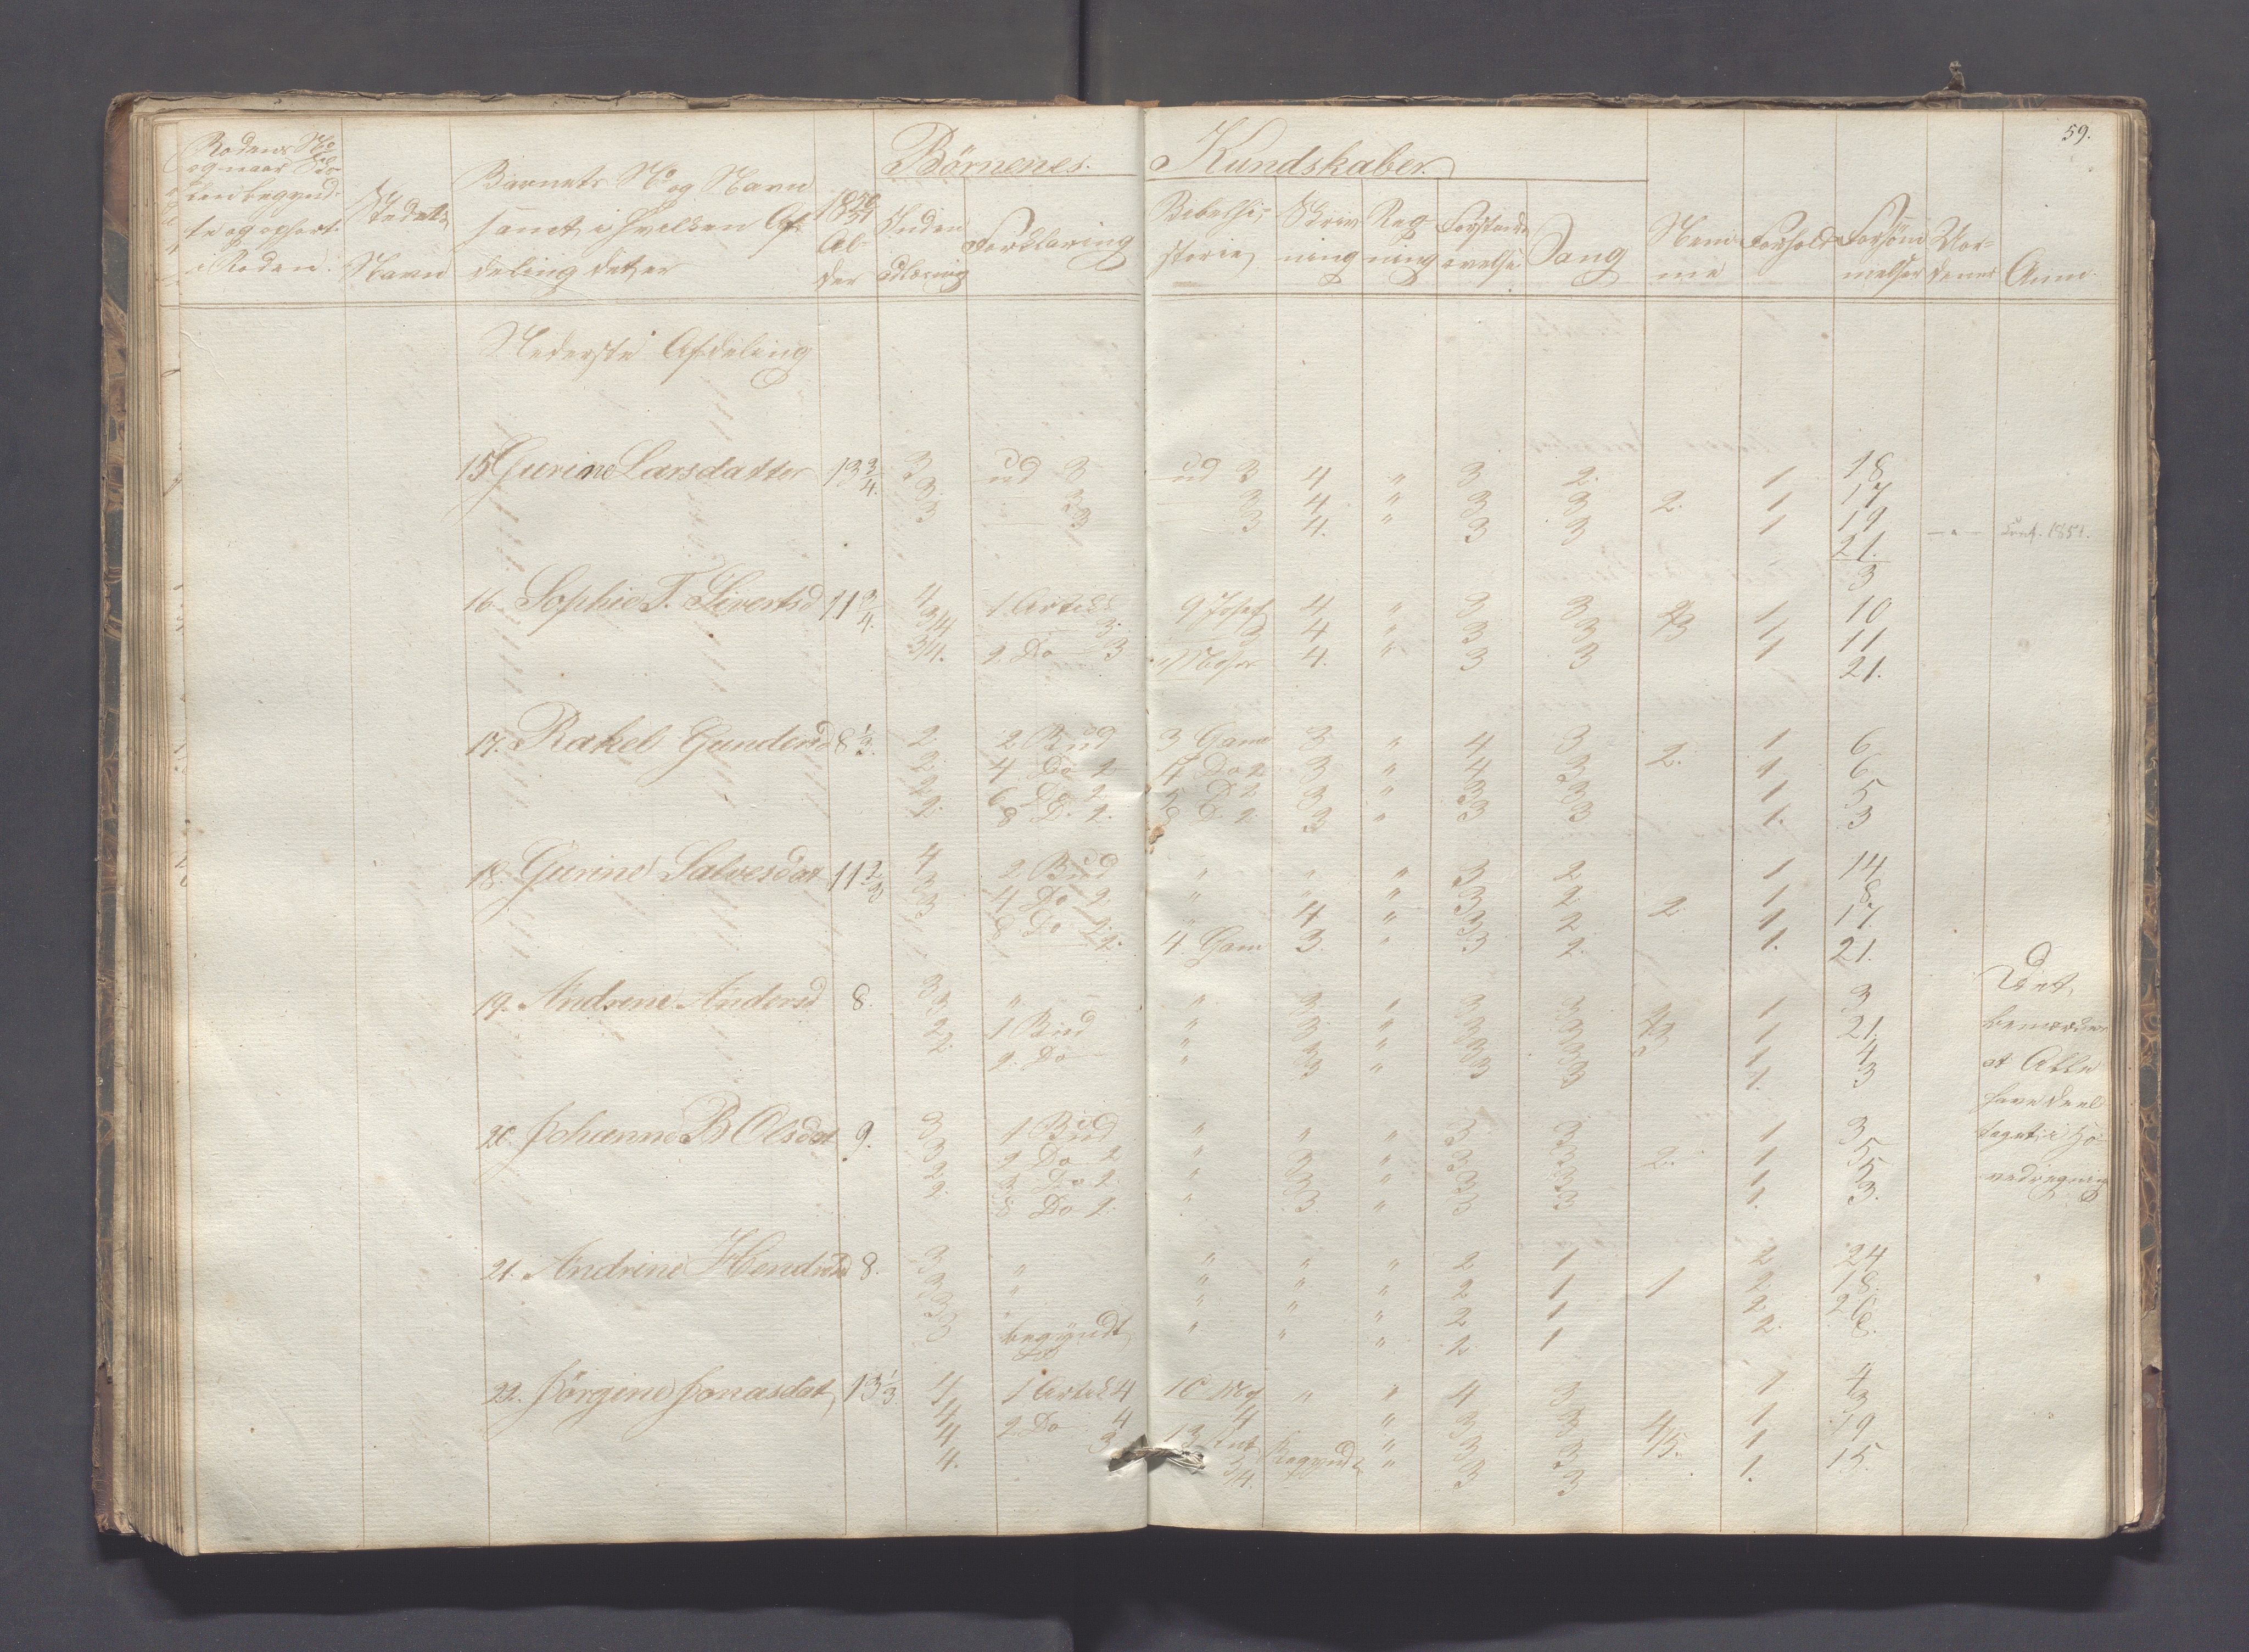 59.
Børnenes Kundskaber.
Rodens No
og naar Sko-
len begynd-
te og ophørt
i Roden.
Stedets
Navn
Barnets No og Navn
samt i hvilken Af-
deling det er
1850/51
Al-
der
Inden
adlæsning
Forklaring
Bibelhi-
storie
Skriv
ning
Reg
ning
Forstands
øvelse
Sang
Nem-
me
Forhold
Forsøm
melser
Anm.
Nederste Afdeling
15 Gurine Larsdatter 13 3/4. 3 ud 3 ud 3 4 " 3 2. 1 18
3 3 3 4 " 3 3 2. 1 17
3 3 3 4. " 3 3 1 19
21.
Conf. 1851.
3
16. Sophie T. Sivertsd 11 3/4. 4 1 Artikl 9 Josef 4 " 3 3 2/3 1 10
3/4 3. 3 4 " 3 3 1 11
3/4. 2 Do 3 " Moses 4. " 3 3 1 21.
17. Rakel Gundersd 8 1/3. 2 2 Bud 3 Gaml 3 " 4 3 2. 1 6
2. 4 Do 2 4 Do 2 3 " 4 3 1 6
2 6 Do 2 5 D 2 3 " 3 3 1 5
2. 8 D. 2. 8 D. 2 3 " 3 3 1. 3
18. Gurine Salvesdat 11 2/3 4 2 Bud " " " 3 2 1 14
3 4 Do 2 " " " 3 2 1 8.
3 8 Do 2. " 4 " 3 2 2 1 17.
2. 4. Gam 3. " 3 2. 1. 21.
19. Andrine Andersd 8. 3 " " 3 " 3 3 1 3
3 1 Bud " 3 " 3 3 2/3 1 21.
2 2. Do " 3 " 3 3 1. 4
2. 3 3 3 1. 3
Det
bemærkes
at Alle
have deel-
taget i Ho-
vedregning
20. Johanne B Olsdat 9. 3 1 Bud " " " 3 3 1 3
3 2 Do 2 " 3 " 3 3 2. 1 5
2 3 Do 2 " 3 " 3 3 1 5
2. 8 Do 2. " 3. " 3 3 1. 3.
21. Andrine Hendrikd 8. 3 " " " " 2 1 2 24
3 " " " " 2 1 1 2 18.
3 " " " " 2 1 2. 26
3 begyndt " " " 2. 1 2. 8.
22. Jörgine Jonasdat, 13 1/3. 4 1 Artikl 4 10 Mos " " 4 3 1 4
4 2 Do 4 4 " 3 3 4/5. 1 3
4 3 13 begyndt " 3 3 1 19
4. 3/4. " 3 3 1. 15.